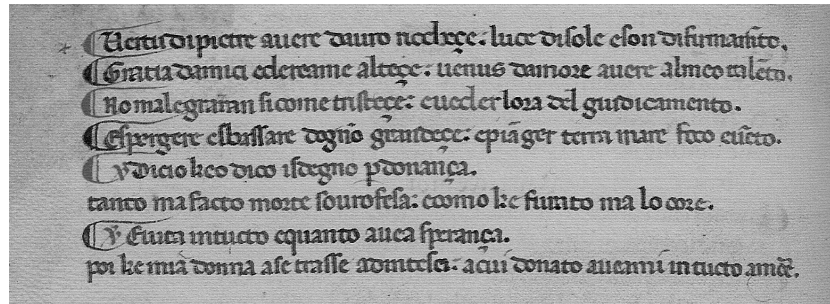 Uertu di pietre auere dauro ricchęçe: luce di sole e son di firmamẽto.
Gratia damici e dereame alteçe: uenus damore auere almeo talẽto.
No malegrarian sicome tristeçe: e uedler lora del giudicamento.
E spergere esbassare dogno grandeçe: e piãger terra mare foco e uẽto.
ẏ Dicio keo dico isdegno pdonança.
tanto ma facto morte sourofesa: comο ke furato ma lo core.
ẏ E uita in tucto e quanto auea sperança.
poi ke mia donna ase trasse a dintesa: a cui donato aueami in tucto amõr.